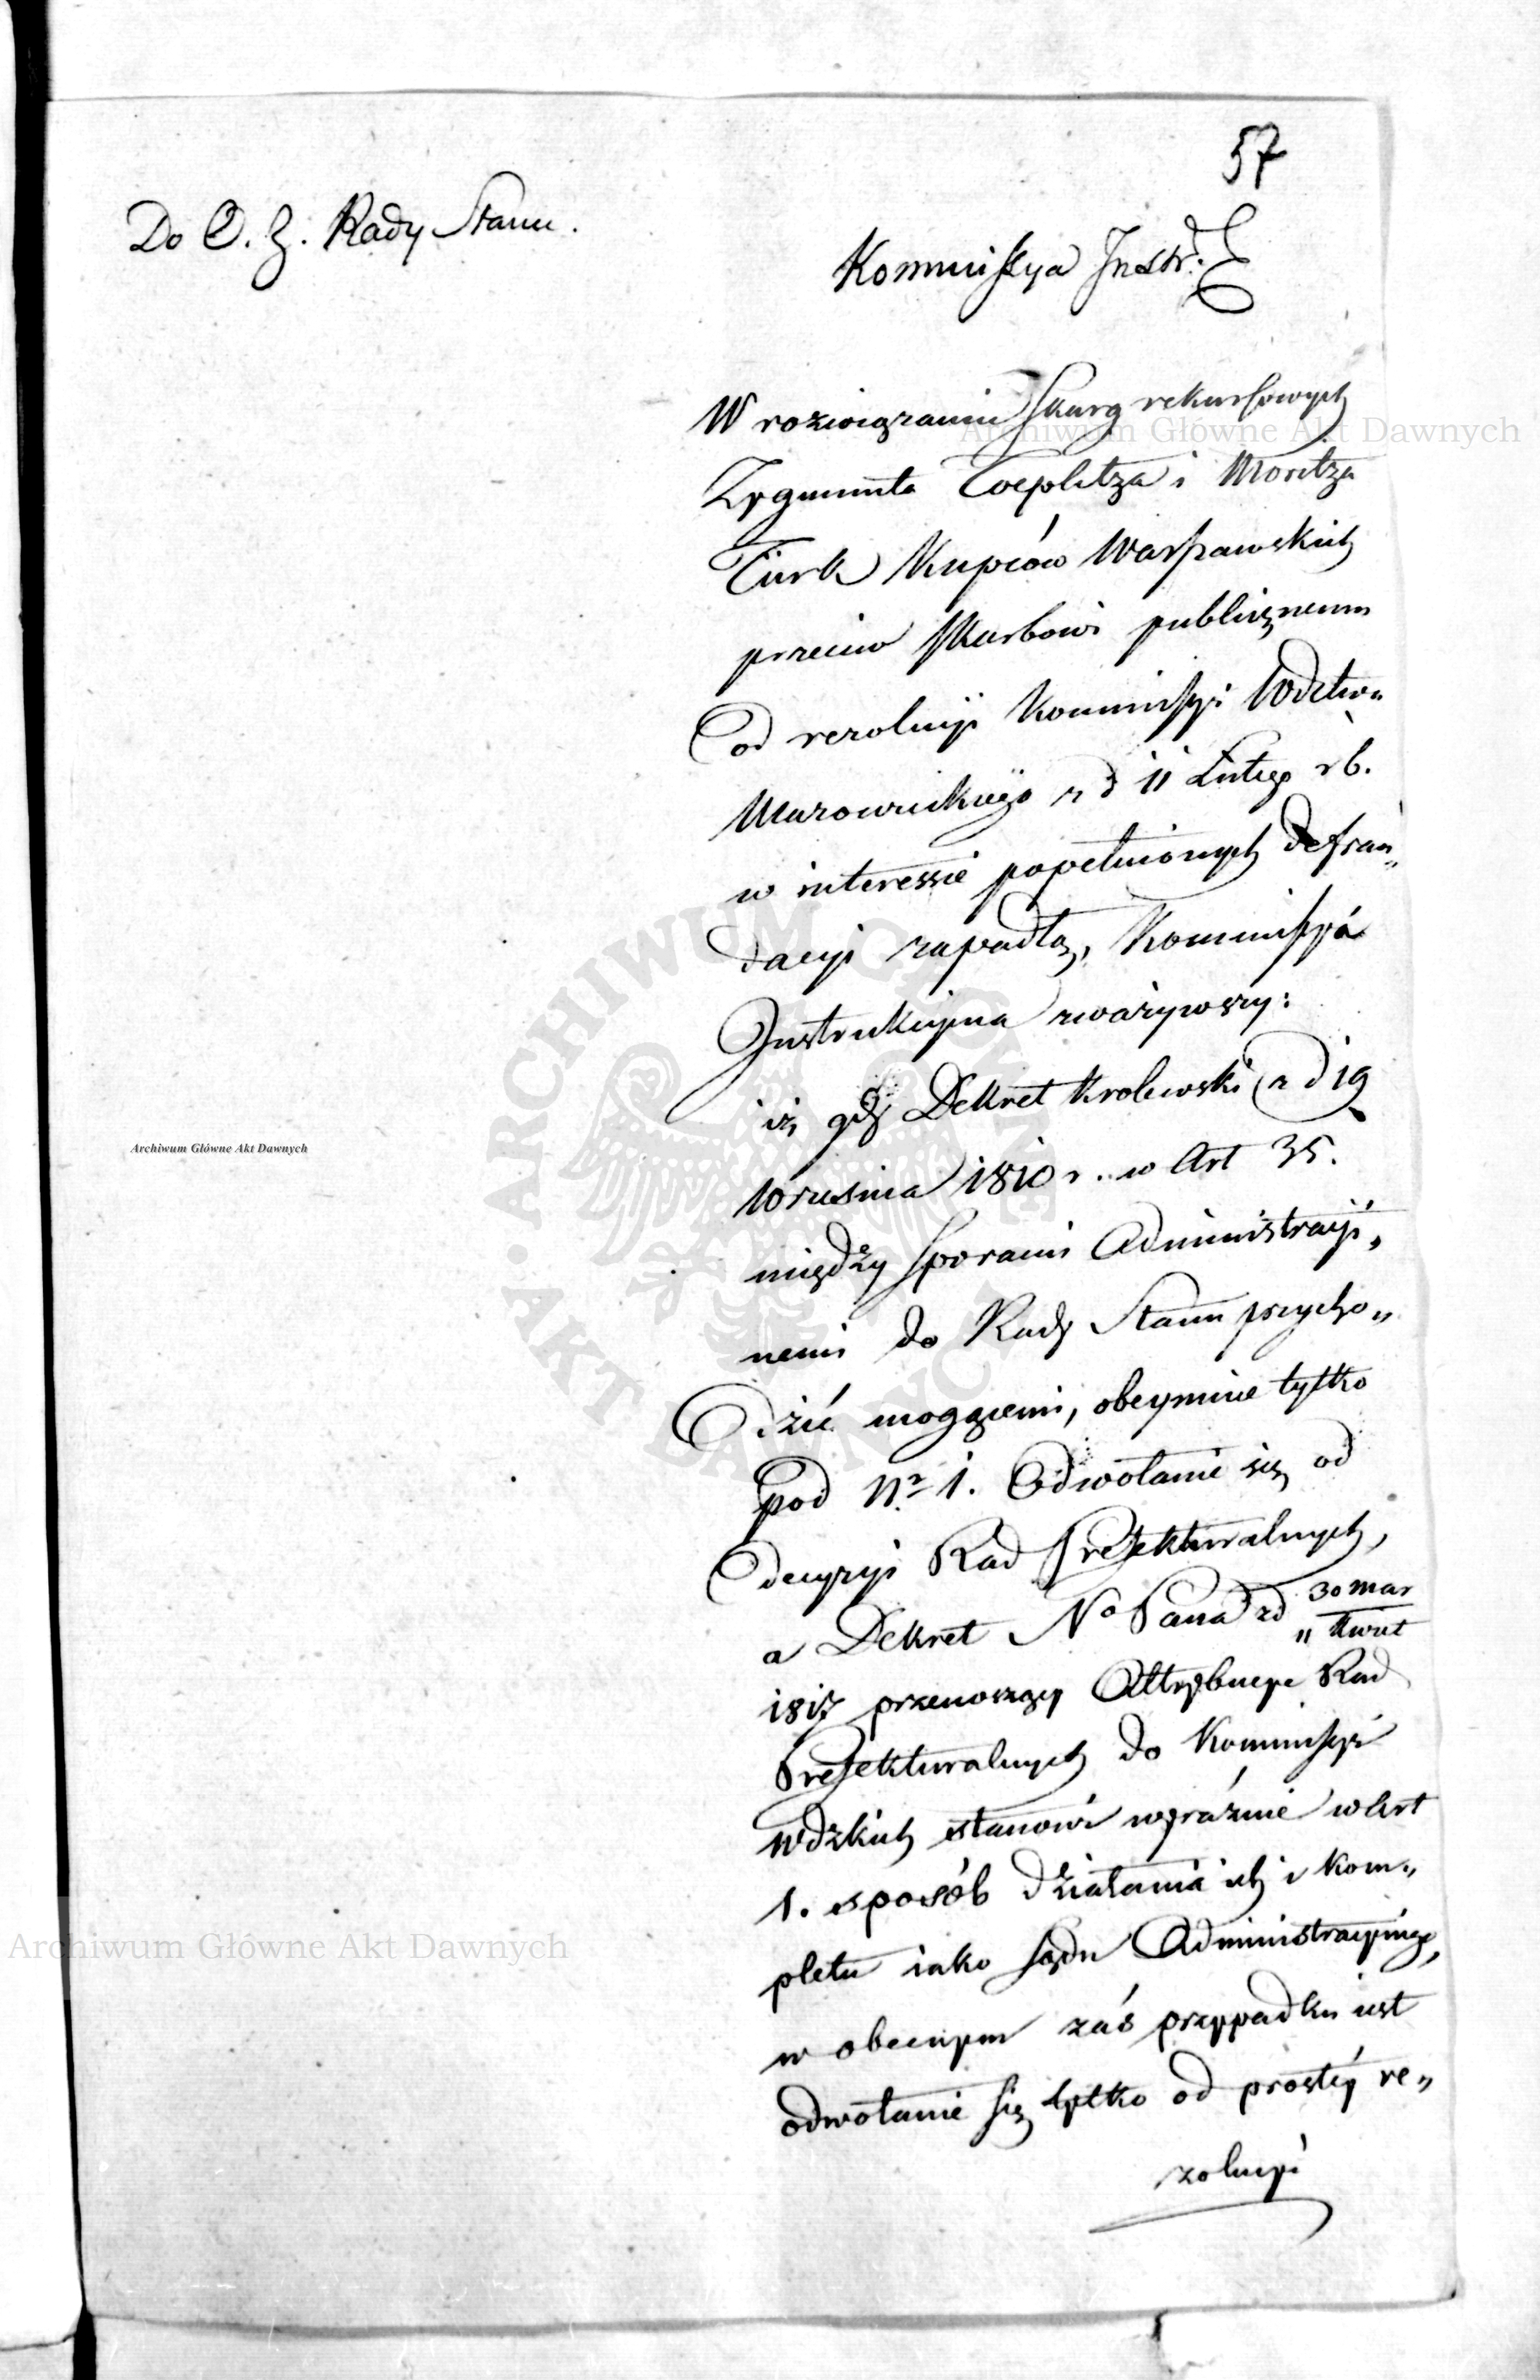 57
Do O. Z. Rady Stanu.
Kommissya Instr.
W rozwiązaniu skarg rekursowych
Zygmunta Toeplitza i Moritza
Türk Kupców Warszawskich
przeciw Skarbowi publicznemu
od rezolucyi Kommissyi Wdztwa
Mazowieckiego z d 11 Lutego r b.
w interessie popełnionych defrau„
dacyi zapadłą, Kommissya
Instrukcyina zważywszy:
iż gdy Dekret Krolewski z d 19
Września 1810 r. w Art 35.
między sporami Administracyi„
nemi do Rady Stanu przycho„
dzić mogącemi, obeymuie tylko
pod Nr 1. Odwołanie się od
decyzyi Rad Prefekturalnych,
a Dekret No Pana z d 30 mar
„ Kwiet
1817 przenoszący Attrybucye Rad
Prefekturalnych do Kommissyi
Wdzkich stanowi wyraźnie w Art
1. sposób działania ich i kom„
pletu iako Sądu Administracyinego,
w obecnym zaś przypadku iest
odwołanie się tylko od prostey re„
zolucyi
Archiwum Główne Akt Dawnych
Archiwum Główne Akt Dawnych
Archiwum Główne Akt Dawnych
ARCHIWUM GŁÓWNE · AKT DAWNYCH ·